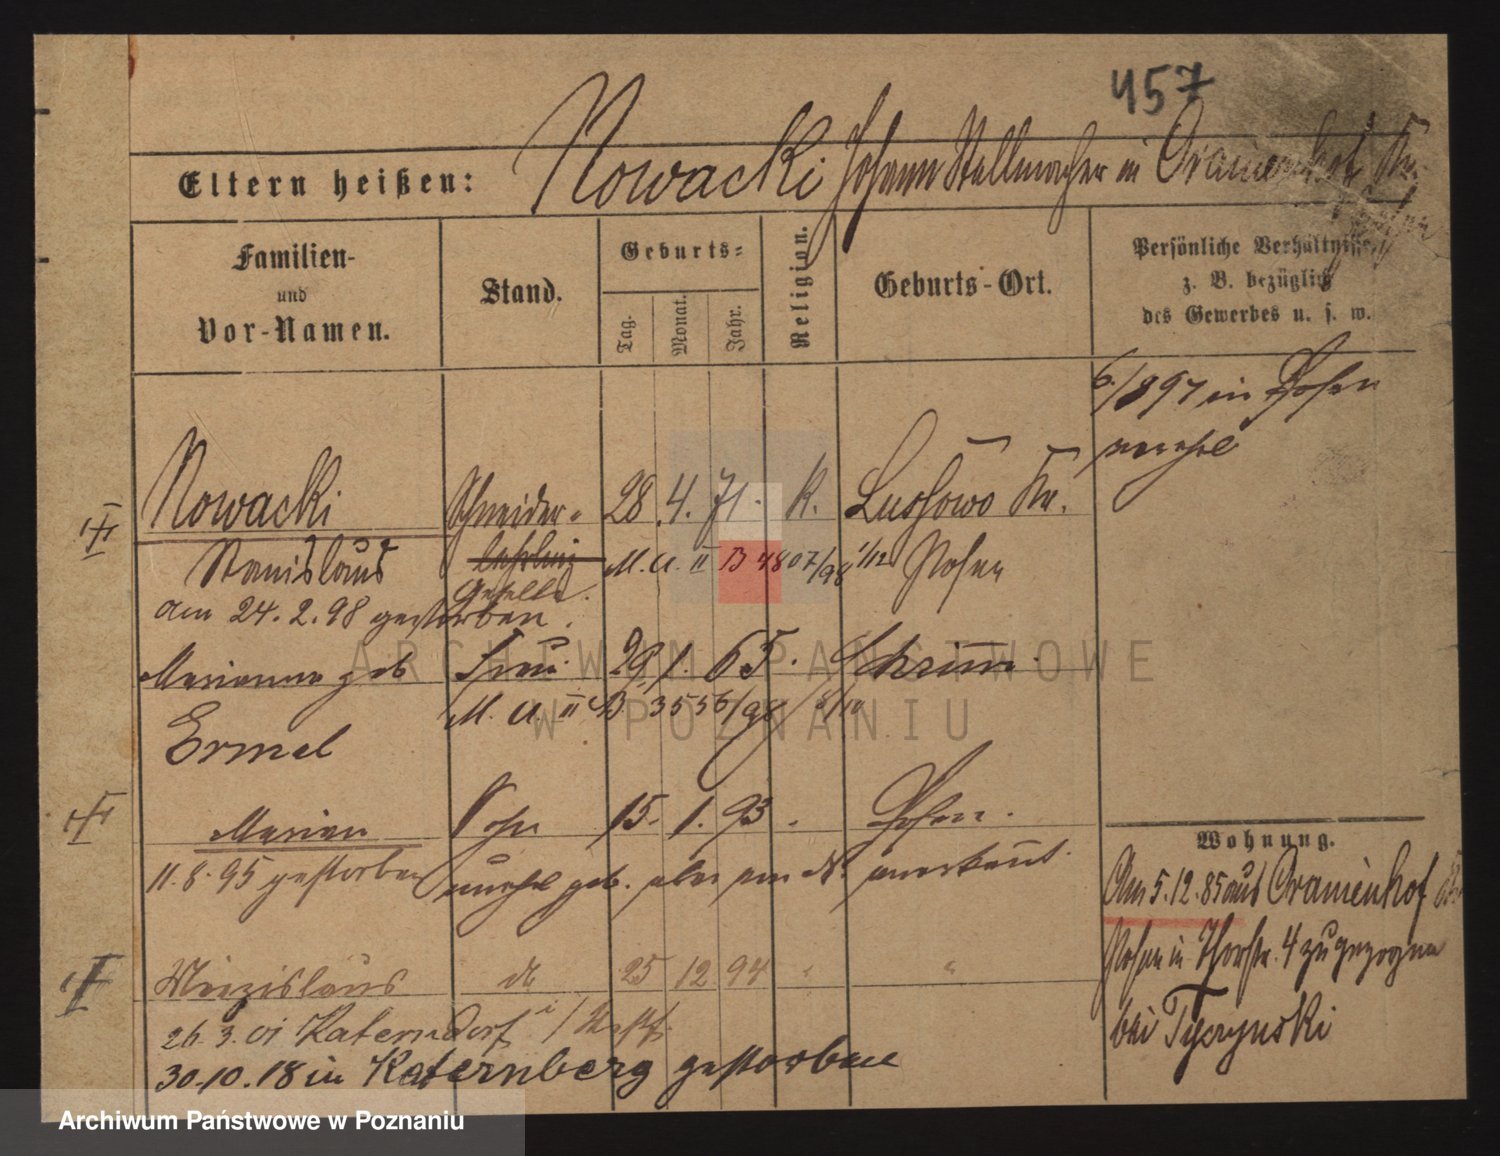 457
Eltern heißen: Nowacki Johann Stellmacher in Oranienhof Kr.
Posen
Familien-
und
Vor-Namen.
Stand.
Geburts=
Tag.
Monat.
Jahr.
Religion.
Geburts-Ort.
Persönliche Verhältnisse,
z. B. bezüglich
des Gewerbes u. s. w.
6/897 in Posen
verehel
Nowacki Schneider- 28. 4. 71. K. Lussowo Kr.
Stanislaus lehrling M. U. II B 4807/98 1/12 Posen
Geselle.
am 24. 2. 98 gestorben.
Marianna geb Frau 29. 1. 65. Schrimm.
M. U. II B 3556/98 /10
Ermel
Marian Sohn 15. 1. 93. Posen.
11. 8. 95 gestorben unehel geb. aber von N. anerkannt.
Miezislaus do 25 12 94 " "
26. 3. 01 Katerndorf i/Westf.
30. 10. 18 in Katernberg gestorben
Wohnung.
Am 5. 12. 85 aus Oranienhof Kr.
Posen in Thorstr. 4 zugezogen
bei Tyczynski
ARCHIWUM PAŃSTWOWE
W POZNANIU
Archiwum Państwowe w Poznaniu